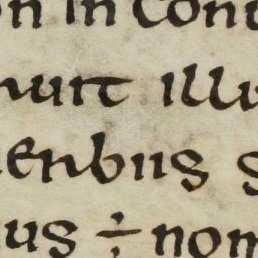 on in con
uit illu
eribus s
us ÷ nom